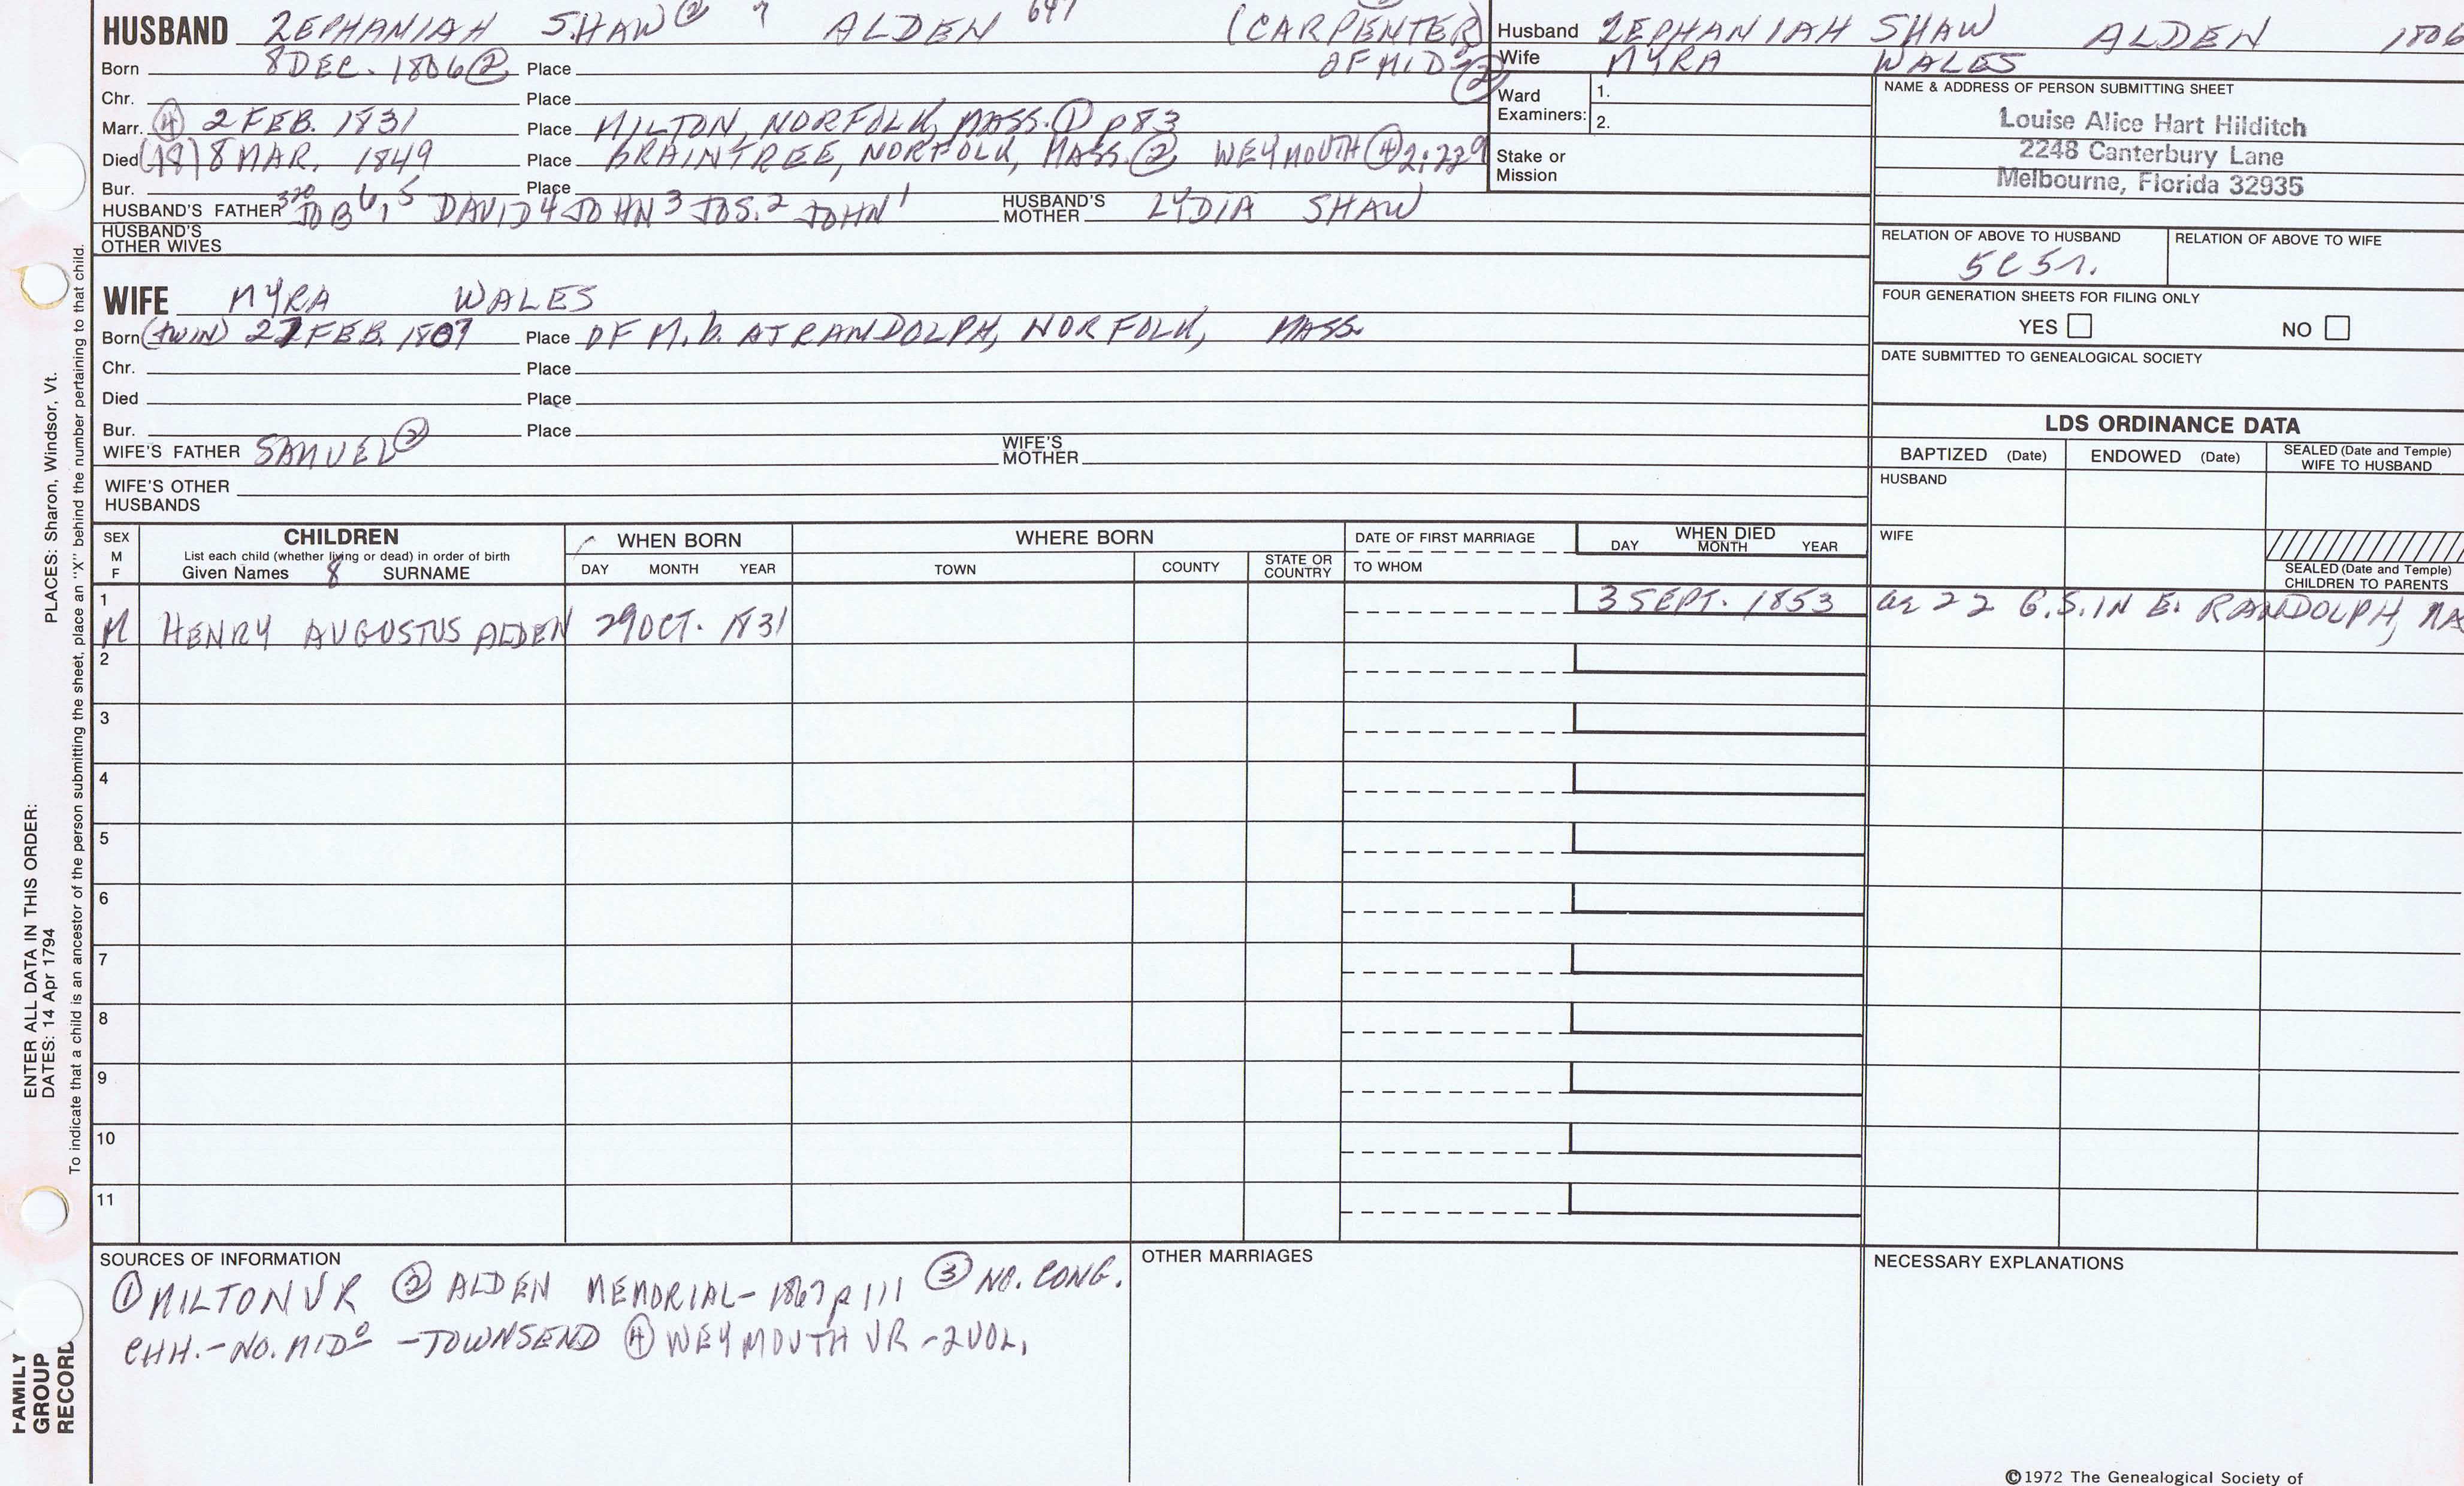 HUSBAND ZEPHANIAH SHAW ② 7 ALDEN 647 (CARPENTER)
Born 8 DEC. 1806 ② Place OF MID° ②
Chr. Place
Marr. ④ 2 FEB. 1831 Place MILTON, NORFOLK, MASS. ① p83
Died (18) 8 MAR. 1849 Place BRAINTREE, NORFOLK, MASS. ② WEYMOUTH ④ 2:229
Bur. Place
HUSBAND'S FATHER 320 JOB 6, 5 DAVID 4 JOHN 3 JOS. 2 JOHN 1 HUSBAND'S MOTHER LYDIA SHAW
HUSBAND'S OTHER WIVES
Husband ZEPHANIAH SHAW ALDEN 1806
Wife MYRA WALES
Ward Examiners: 1.
2.
Stake or Mission
NAME & ADDRESS OF PERSON SUBMITTING SHEET
Louise Alice Hart Hilditch
2248 Canterbury Lane
Melbourne, Florida 32935
RELATION OF ABOVE TO HUSBAND RELATION OF ABOVE TO WIFE
5C5r.
FOUR GENERATION SHEETS FOR FILING ONLY
YES NO
DATE SUBMITTED TO GENEALOGICAL SOCIETY
WIFE MYRA WALES
Born (twin) 27 FEB. 1807 Place OF M. b. AT RANDOLPH, NORFOLK, MASS.
Chr. Place
Died Place
Bur. Place
WIFE'S FATHER SAMUEL ② WIFE'S MOTHER
WIFE'S OTHER HUSBANDS
LDS ORDINANCE DATA
BAPTIZED (Date) ENDOWED (Date) SEALED (Date and Temple) WIFE TO HUSBAND
HUSBAND
WIFE
SEALED (Date and Temple) CHILDREN TO PARENTS
SEX M F
CHILDREN
List each child (whether living or dead) in order of birth
Given Names 8 SURNAME
WHEN BORN
DAY MONTH YEAR
WHERE BORN
TOWN COUNTY STATE OR COUNTRY
DATE OF FIRST MARRIAGE
TO WHOM
WHEN DIED
DAY MONTH YEAR
1 M HENRY AUGUSTUS ALDEN 29 OCT. 1831 3 SEPT. 1853 ae 22 G.S. IN E. RANDOLPH, MA
2
3
4
5
6
7
8
9
10
11
SOURCES OF INFORMATION
① MILTON VR ② ALDEN MEMORIAL- 1867 p 111 ③ NO. CONG.
CHH.- NO. MID° - TOWNSEND ④ WEYMOUTH VR - 2 VOL.
OTHER MARRIAGES
NECESSARY EXPLANATIONS
©1972 The Genealogical Society of
PLACES: Sharon, Windsor, Vt.
ENTER ALL DATA IN THIS ORDER:
DATES: 14 Apr 1794
To indicate that a child is an ancestor of the person submitting the sheet, place an "X" behind the number pertaining to that child.
FAMILY
GROUP
RECORD